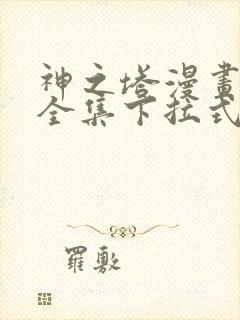 神之塔漫畫
全集下拉式
羅敷